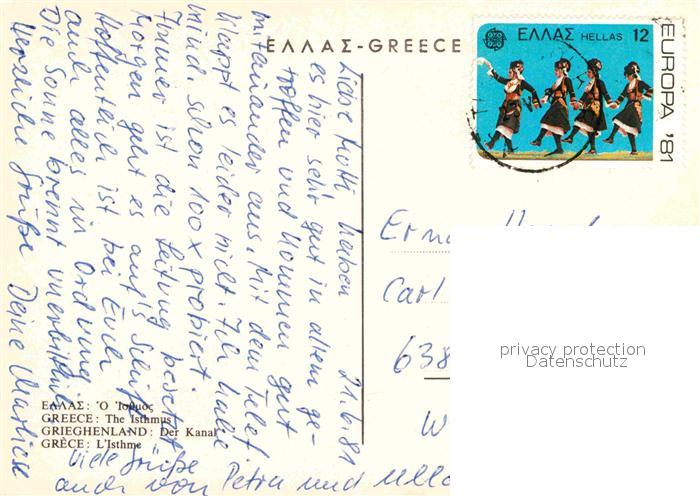 ΕΛΛΑΣ-GREECE
ΕΛΛΑΣ HELLAS 12
EUROPA '81
21.6.81
Liebe Mutti haben
es hier sehr gut in allem ge-
troffen und kommen gut
miteinander aus. Mit dem Telef.
klappt es leider nicht. Ich habe
mind. schon 100 x probiert
Immer ist die Leitung besetzt
Morgen geht es auf's Schiff
Hoffentlich ist bei Euch
auch alles in Ordnung
Die Sonne brennt unerbittlich
Herzliche Grüße Deine
Viele Grüße
auch von Petra und Ulla
Carl
638
W
privacy protection
Datenschutz
ΕΛΛΑΣ: Ὁ Ἰσθμος
GREECE: The Isthmus
GRIEGHENLAND: Der Kanal
GRÈCE: L'Isthme